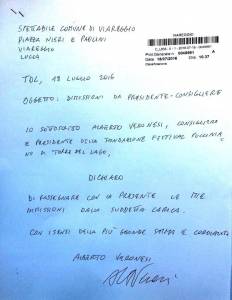 SPETTABILE COMUNE DI VIAREGGIO
PIAZZA NIERI E PAOLINI
VIAREGGIO
LUCCA
VIAREGGIO
Data 18/07/2016 Ore 16:37
Classificazione
TDL, 18 LUGLIO 2016
OGGETTO: DIMISSIONI DA PRESIDENTE-CONSIGLIERE
IO SOTTOSCRITTO ALBERTO VERONESI, CONSIGLIERE
E PRESIDENTE DELLA FONDAZIONE FESTIVAL PUCCINIA
NO DI TORRE DEL LAGO,
DICHIARO
DI RASSEGNARE CON LA PRESENTE LE MIE
DIMISSIONI DALLA SUDDETTA CARICA.
CON I SENSI DELLA PIÙ GRANDE STIMA E CORDIALITÀ
ALBERTO VERONESI